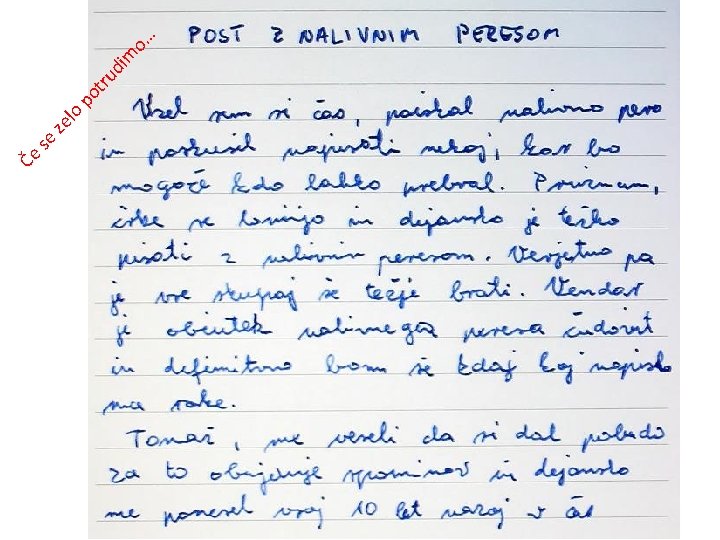 Če se zelo potrudimo...
POST Z NALIVNIM PERESOM
Vzel sem si čas, poiskal nalivno pero
in poskusil napisati nekaj, kar bo
mogoče kdo lahko prebral. Priznam,
črke se lomijo in dejansko je težko
pisati z nalivnim peresom. Verjetno pa
je vse skupaj še težje brati. Vendar
je občutek nalivnega peresa čudovit
in definitivno bom še kdaj kaj napisala
na roke.
Tomaž, me veseli da si dal pobudo
za to obujanje spominov in dejansko
me ponesel vsaj 10 let nazaj v čas